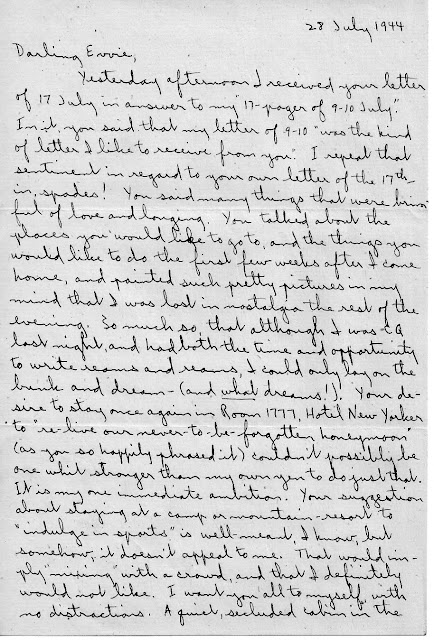 28 July 1944
Darling Evvie,
Yesterday afternoon I received your letter
of 17 July in answer to my "17-pager of 9-10 July".
In it, you said that my letter of 9-10 "was the kind
of letter I like to receive from you". I repeat that
sentiment in regard to your own letter of the 17th—
in spades! You said many things that were brim
ful of love and longing. You talked about the
places you would like to go to, and the things you
would like to do the first few weeks after I come
home, and painted such pretty pictures in my
mind that I was lost in nostalga the rest of the
evening. So much so, that although I was CQ
last night, and had both the time and opportunity
to write reams and reams, I could only lay on the
bunk and dream—(and what dreams!). Your de-
sire to stay once again in Room 1777, Hotel New Yorker
to "re-live our never-to-be-forgotten honeymoon"
(as you so happily phrased it) couldn't possibly be
one whit stronger than my own yen to do just that.
It is my one immediate ambition. Your suggestion
about staying at a camp or mountain-resort to
"indulge in sports" is well-meant, I know, but
somehow, it doesn't appeal to me. That would im-
ply "mixing" with a crowd, and that I definitely
would not like. I want you all to myself, with
no distractions. A quiet, secluded cabin in the